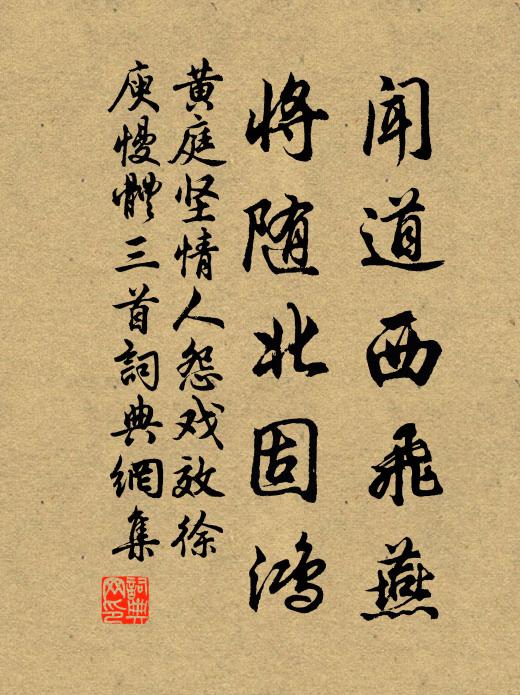 闻道西飛燕
将随北固鴻
黄庭坚情人怨戏效徐
庾慢體三首詞典網集
詞典網印